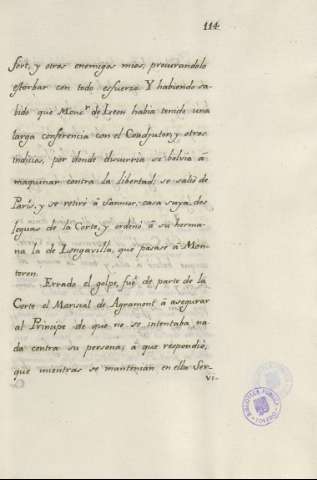 114
fort, y otros enemigos mios, procurandolo
estorbar con todo esfuerzo Y habiendo sa-
bido que Mons.r de Leon habia tenido una
larga conferencia con el Coadjutor, y otros
indicios, por donde discurria se bolvia á
maquinar contra la libertad; se salió de
París, y se retiró á Sanmur, casa suya, dos
leguas de la Corte, y ordenó á su herma-
na la de Longavilla, que pasase á Mon-
toren.
Errado el golpe, fué de parte de la
Corte el Mariscal de Agramont á asegurar
al Principe de que no se intentaba na-
da contra su persona; á que respondió,
que mientras se mantenian en ella Ser-
vi-
BIBLIOTECA PUBLICA
TOLEDO